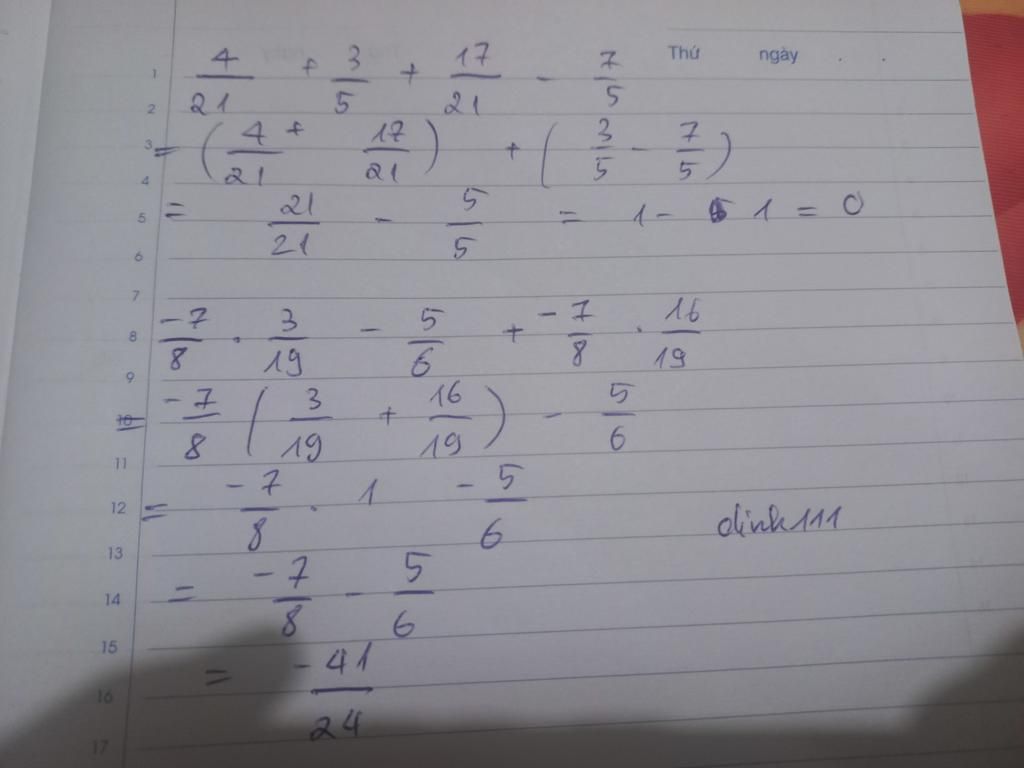 Thứ ngày . .
1 4/21 + 3/5 + 17/21 - 7/5
2
3 = (4/21 + 17/21) + (3/5 - 7/5)
4
5 = 21/21 - 5/5 = 1 - 1 = 0
6
7
8 -7/8 . 3/19 - 5/6 + -7/8 . 16/19
9
10 = -7/8 (3/19 + 16/19) - 5/6
11
12 = -7/8 . 1 - 5/6
dinh111
13
14 = -7/8 - 5/6
15
16 = -41/24
17